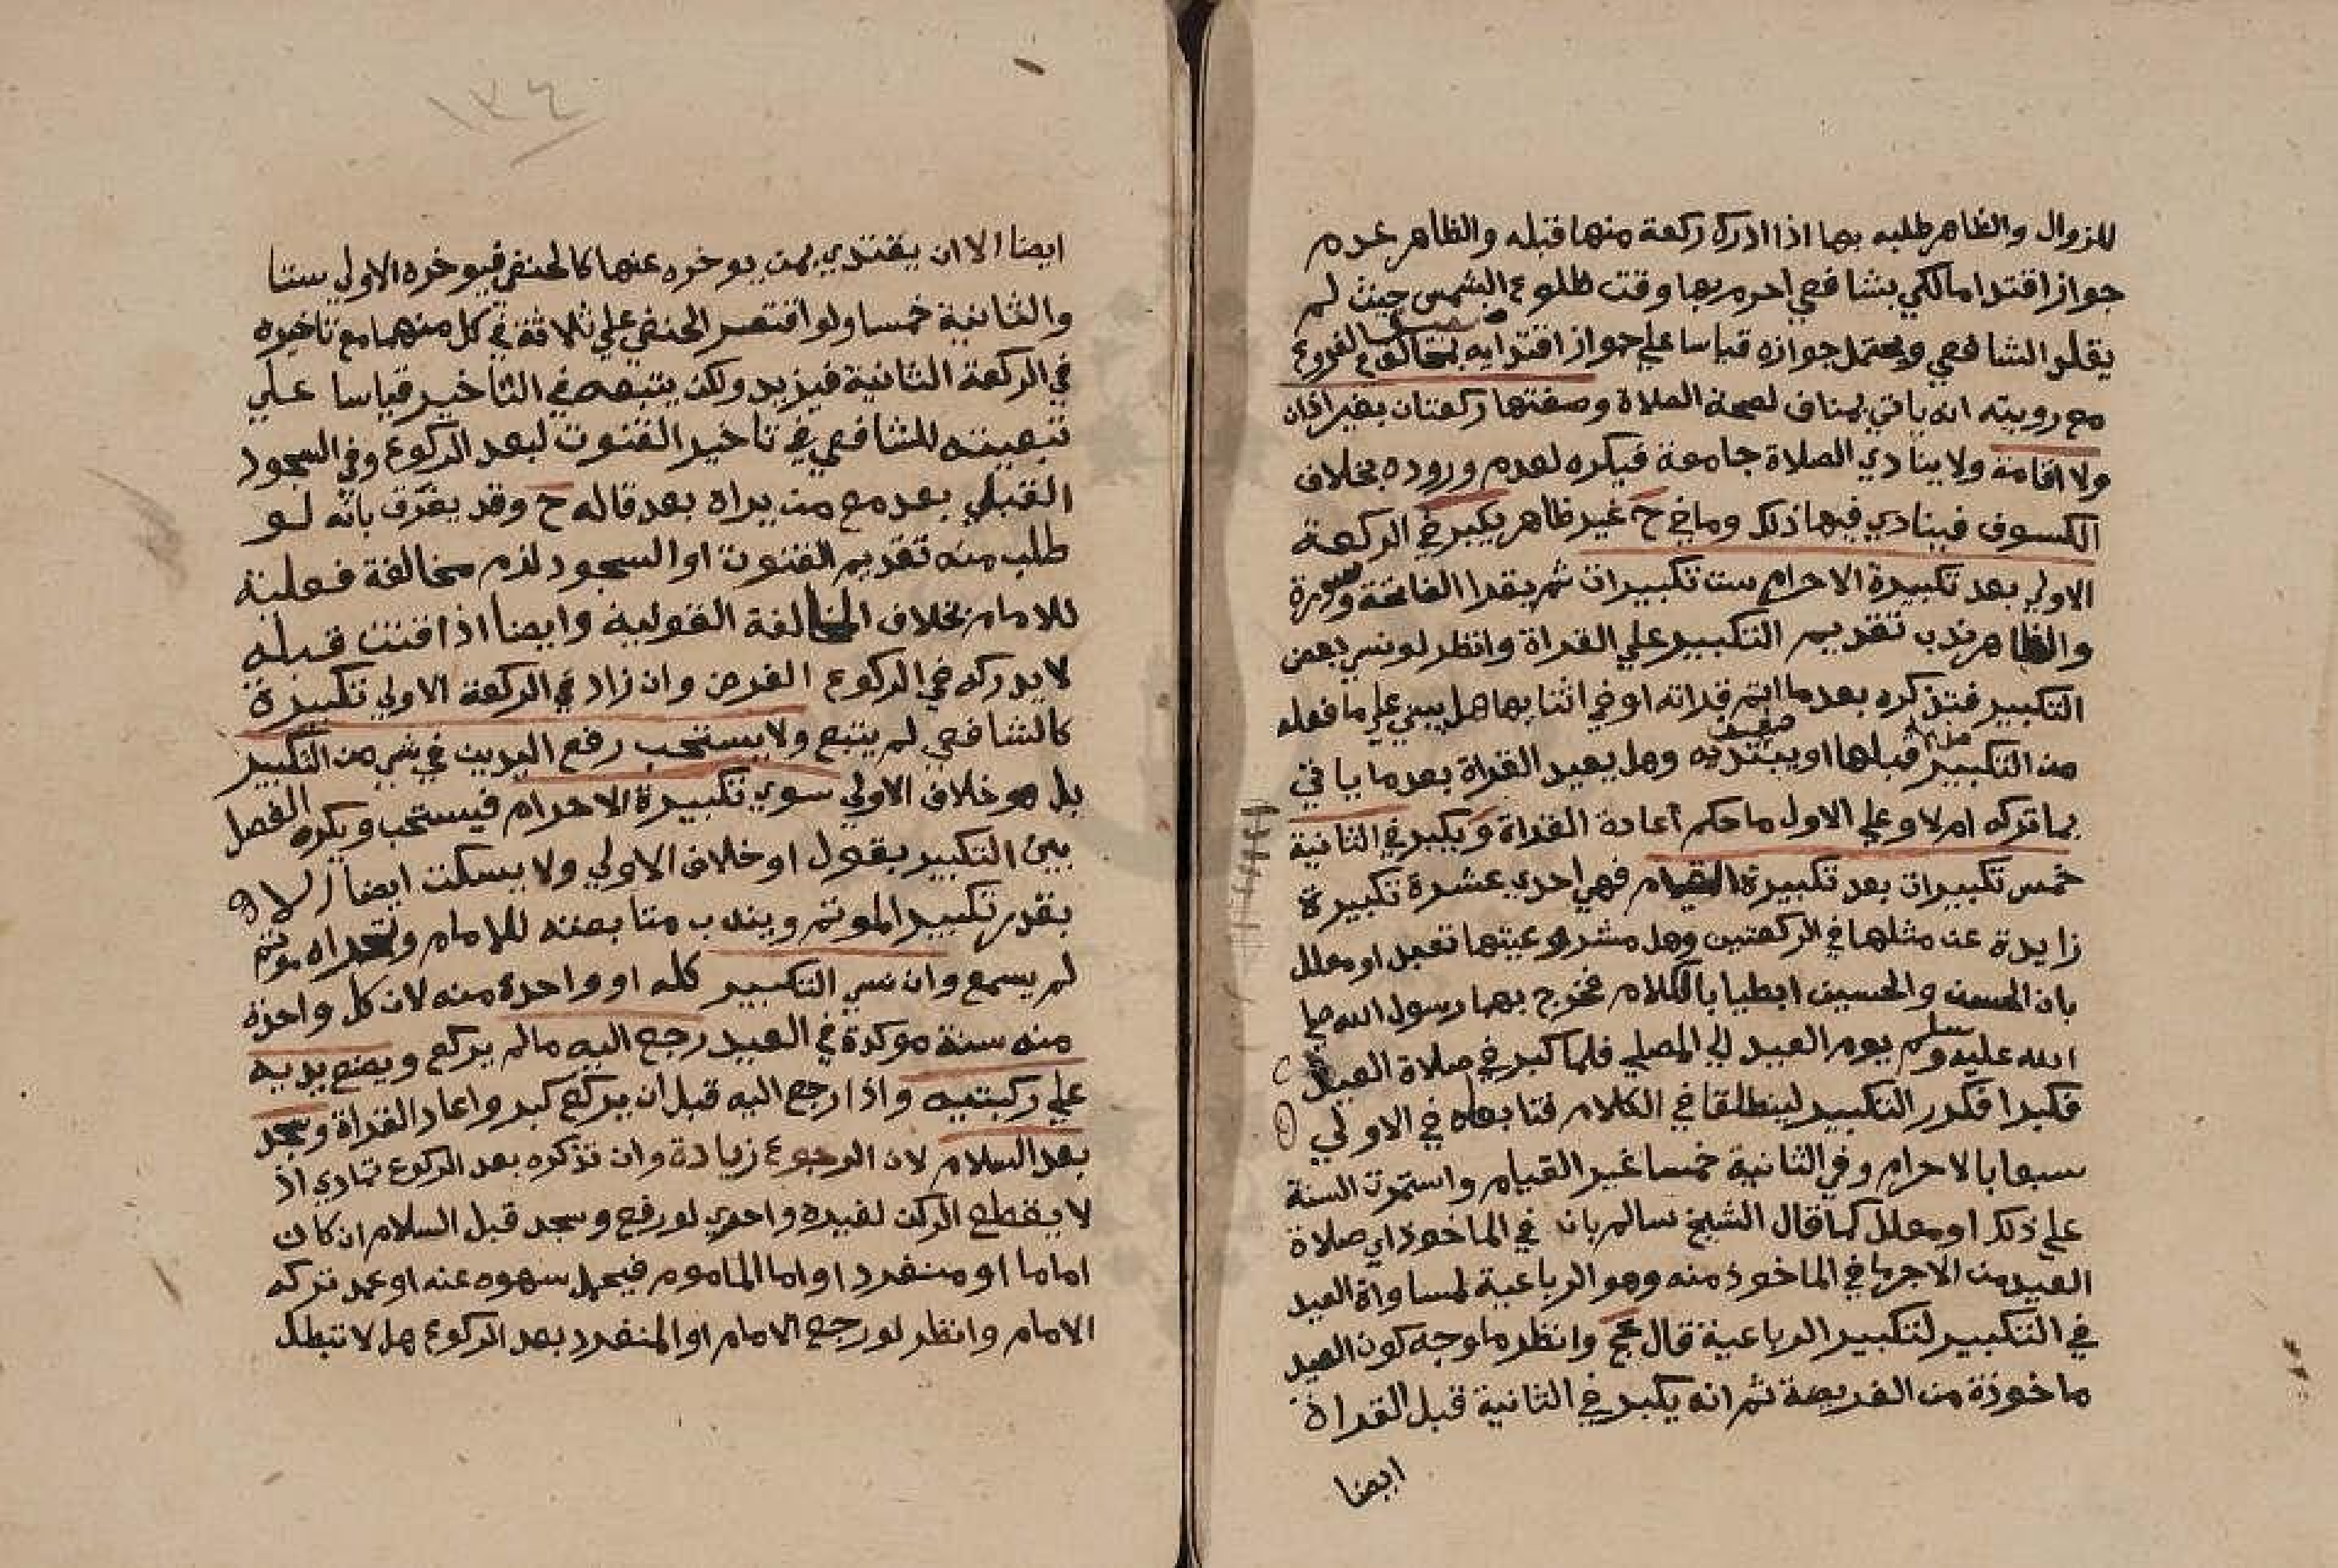 للزوال والظاهر طلبه بها اذا ادرك ركعة منها قبله والظاهر عدم
جواز اقتدا مالكي بشافعي احرم بها وقت طلوع الشمس حيث لم
يقلد الشافعي ويحتمل جوازه قياسا علي جواز اقتدايه بمخالف في الفروع
مع رويته انه ياتي بمناف لصحة الصلاة وصفتها ركعتان بغير اذان
ولا اقامة ولا ينادي الصلاة جامعة فيكره لعدم وروده بخلاف
الكسوف فينادي فيها ذلك وما في ح غير ظاهر يكبر في الركعة
الاولي بعد تكبيرة الاحرام ست تكبيرات ثم يقرا الفاتحة وسورة
والظاهر ندب تقديم التكبير علي القراة وانظر لو نسي بعض
التكبير فتذكره بعدما اتم قراته او في اثنايها هل يبني علي ما فعله
من التكبير قبلها او يبتديه وهل يعيد القراة بعدما ياتي
بما تركه ام لا وعلي الاول ما حكم اعادة القراة ويكبر في الثانية
خمس تكبيرات بعد تكبيرة القيام فهي احدي عشرة تكبيرة
زايدة عن مثلها في الركعتين وهل مشروعيتها تعبد او معلل
بان الحسن والحسين ابطيا بالكلام فخرج بهما رسول الله صلي
الله عليه وسلم يوم العيد الي المصلي فلما كبر في صلاة العيد
فكبرا فكرر التكبير لينطلقا في الكلام فتابعاه في الاولي
سبعا بالاحرام وفي الثانية خمسا غير القيام واستمرت السنة
علي ذلك او معلل كما قال الشيخ سالم بان في الماخوذ اي صلاة
العيد من الاجر ما في الماخوذ منه وهو الرباعية لمساواة العيد
في التكبير لتكبير الرباعية قال عج وانظر ما وجه كون العيد
ماخوذة من الفريضة ثم انه يكبر في الثانية قبل القراة
ايضا
١٣٤
ايضا الا ان يقتدي بمن يوخره عنها كالحنفي فيوخره الاولي ستا
والثانية خمسا ولو اقتصر الحنفي علي ثلاثة في كل منهما مع تاخيره
في الركعة الثانية فيزيد ولكن يتبعه في التاخير قياسا علي
تبعيته للشافعي في تاخير القنوت لبعد الركوع وفي السجود
القبلي بعد مع من يراه بعد قاله ح وقد يفرق بانه لو
طلب منه تقديم القنوت او السجود لزم مخالفة فعلية
للامام بخلاف المخالفة القولية وايضا اذا قنت قبله
لا يدركه في الركوع الفرض وان زاد في الركعة الاولي تكبيرة
كالشافعي لم يتبع ولا يستحب رفع اليدين في شي من التكبير
بل هو خلاف الاولي سوي تكبيرة الاحرام فيستحب ويكره الفصل
بين التكبير بقول او خلاف الاولي ولا يسكت ايضا الا
بقدر تكبير الموتم ويندب متابعته للامام وتحراه موتم
لم يسمع وان نسي التكبير كله او واحدة منه لان كل واحدة
منه سنة موكدة في العيد رجع اليه مالم يركع ويضع يديه
علي ركبتيه واذا رجع اليه قبل ان يركع كبر واعاد القراة وسجد
بعد السلام لان الرجوع زيادة وان تذكره بعد الركوع تمادي اذ
لا يقطع الركن لغيره واحري لو رفع وسجد قبل السلام ان كان
اماما او منفردا او اما الماموم فيحمل سهوه عنه او عمد تركه
الامام وانظر لو رجع الامام او المنفرد بعد الركوع هل لا تبطل